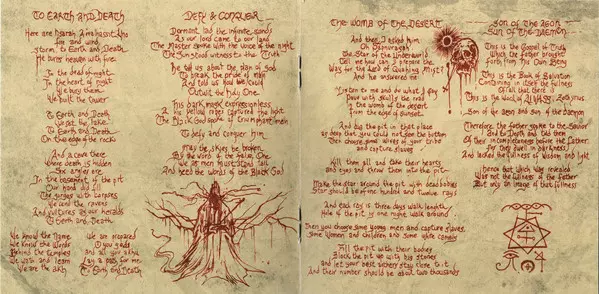 To Earth and Death
Here are
fire and wind
storm to Earth and Death
He burns heaven with fire.
In the dead of night,
In the heart of night
We bury them,
We built the tower
To Earth and Death
the lake
To Earth and Death
On the edge of the rocks
And a cave there
Where death is hidden
Six angles are
In the basement of the pit
Our hand did fill
The gorges with corpses
We send the ravens
And vultures as our heralds
To Earth and Death
We know the Name
We know the Words
Behind the temples
We wait and learn
We are the
We are prepared
O you gods
and all you
lay a path for me
To Earth and Death
Defy & Conquer
Dormant laid the infinite sands
As our lord came to our land
The Master spoke with the voice of the night
The Sun stood witness to the Truth
He told us about the plan of God
To break the pride of man
And told us how we could
Outwit the Holy One
His dark mask expressionless
his yellow robes captured the light
The Black God spoke of triumphant men
To defy and conquer him
May the skies be broken
By the word of the Fallen One
We, men must stand tall
And heed the words of the Black God
The Womb of the Desert
And then I asked him
Oh
the Star of the Underworld
Tell me how can I prepare the
Way for the
And he answered me
Listen to me and do what I say
Pave with skulls the road
to the womb of the desert
from the edge of
And dig the pit in that place
so deep that you could not see the bottom
Then choose some wives of your tribe
and capture slaves
Kill them all and take their hearts
and eyes and throw them into the pit
Make the star around the pit with dead bodies
You should take five hundred and twelve rays
And each ray is three days walk length
Hole of the pit is one night walk around
Then you choose some young men and capture slaves,
Some women and children and some
Fill the pit with their bodies
Block the pit up with big stones
and let your best archers stay close to it
And their number should be about two thousands
Son of the Aeon
Sun of the Daemon
This is the Gospel of Truth
Which the Father brought
forth from His Own Being
This is the Book of Salvation
Containing in itself the fullness
of all that there is
This is the Word of
Son of the aeon and sun of the daemon
Therefore the father spoke to the Saviour
And to Death and told them
of their incompleteness before the Father
For they dwelt in darkness
And lacked the fullness of wisdom and light
Hence that which was revealed
Was not the fullness of the Father
But only an image of that fullness